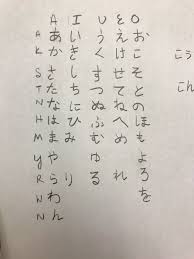 A I U E O
A あ い う え お
K か き く け こ こう
S さ し す せ そ
T た ち つ て と こん
N な に ぬ ね の
H は ひ ふ へ ほ
M ま み む め も
Y や ゆ よ
R ら り る れ ろ
W わ を
N ん